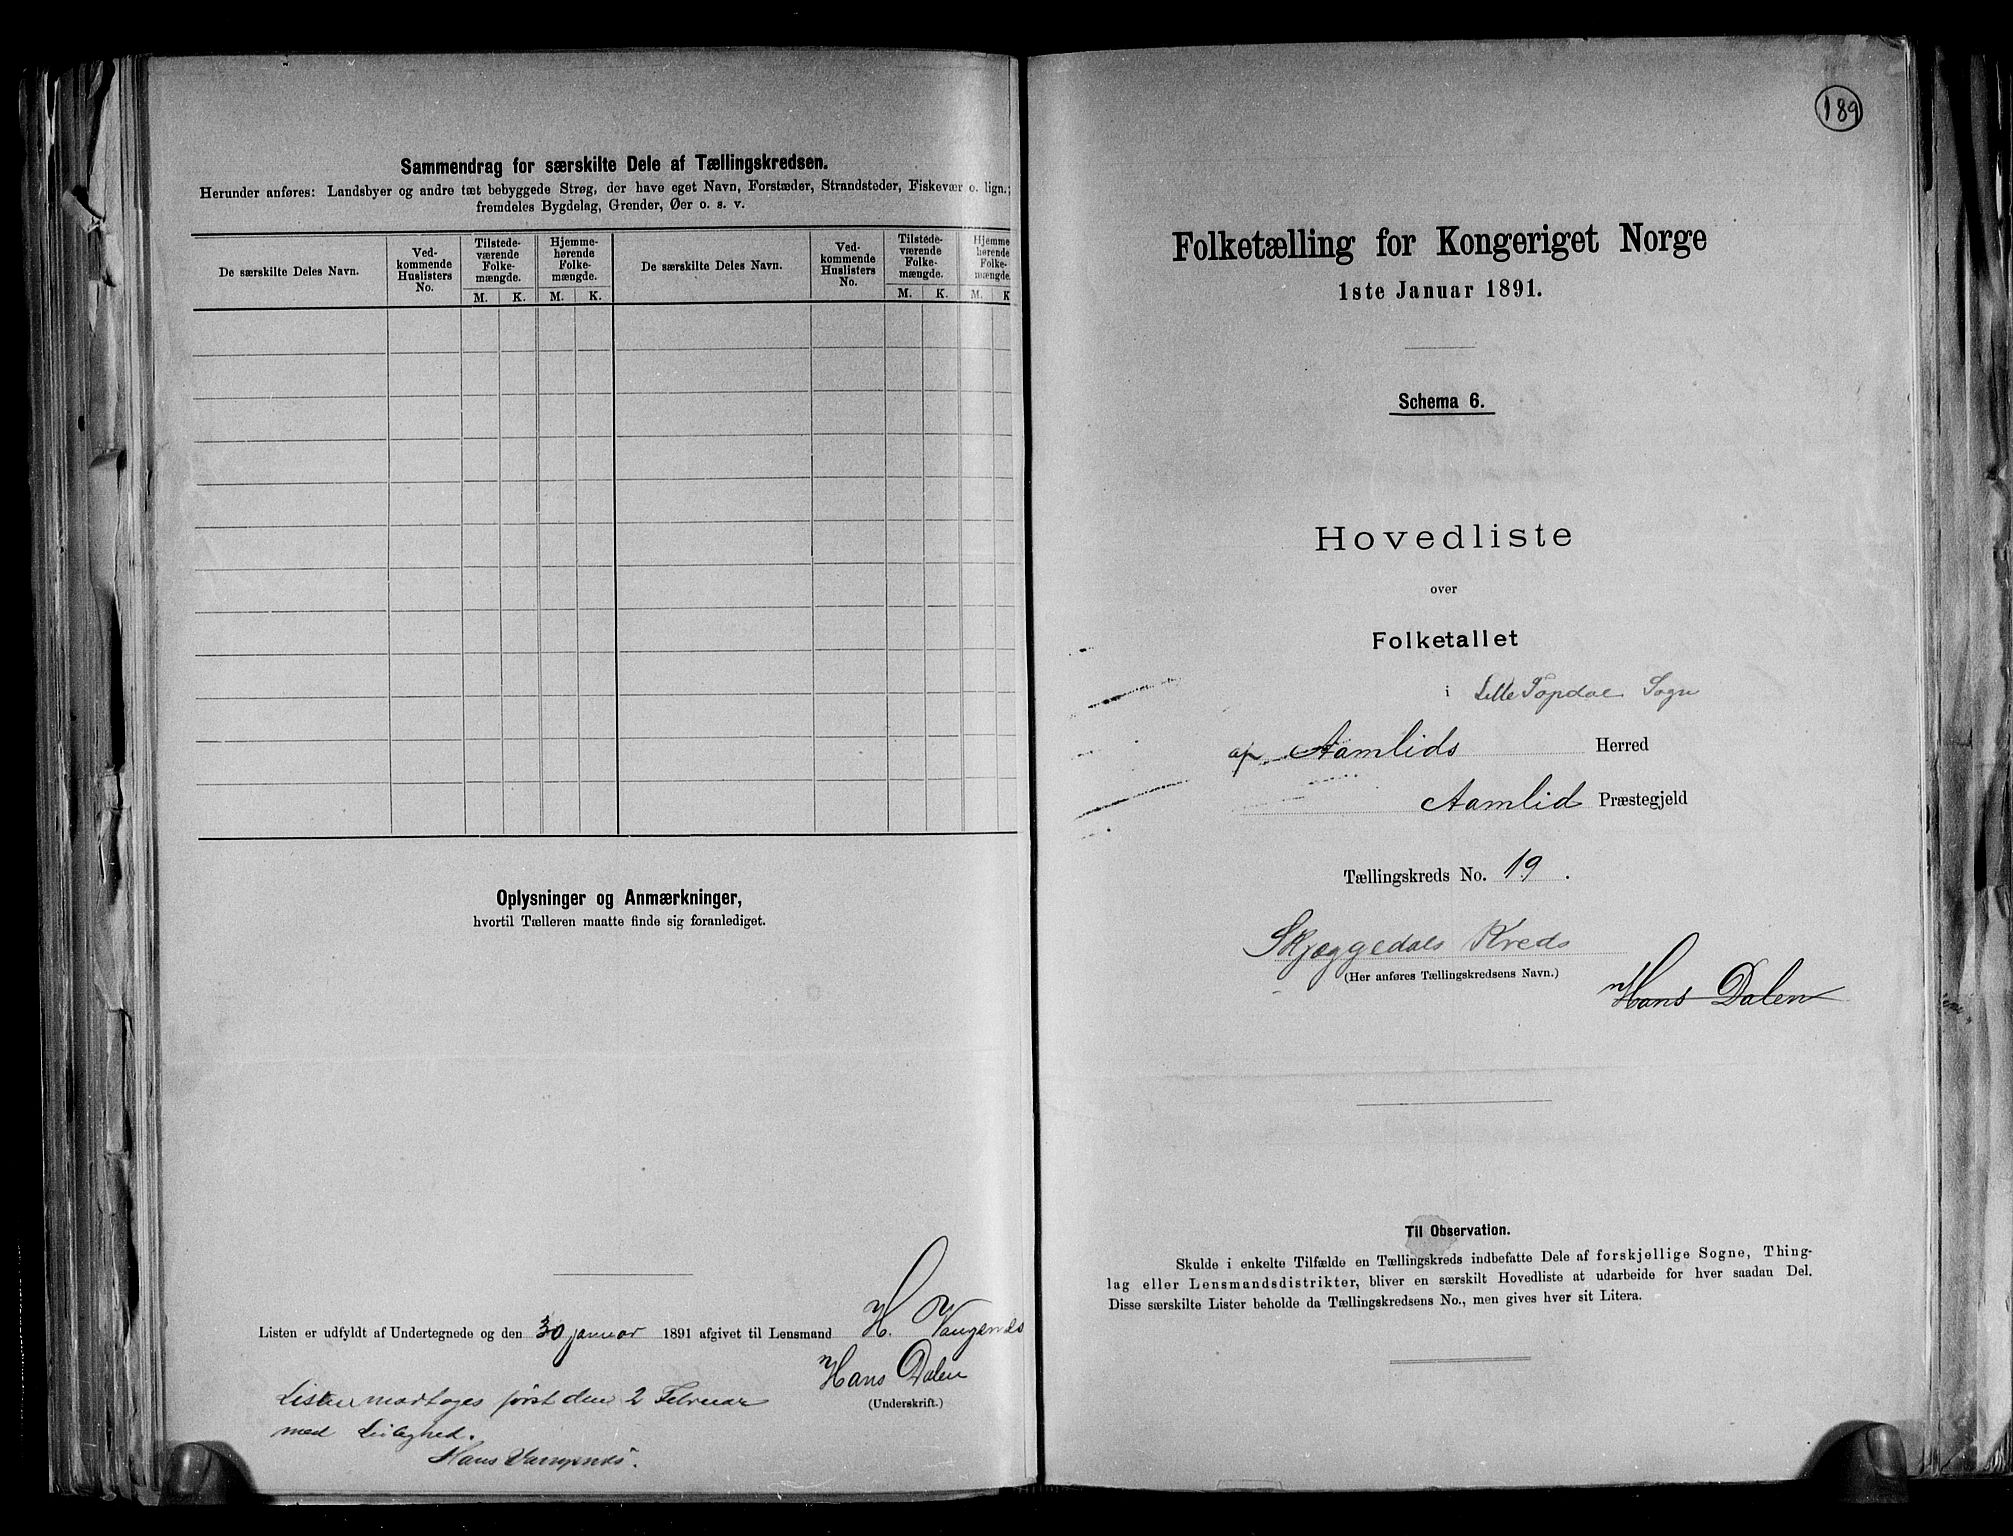 Sammendrag for særskilte Dele af Tællingskredsen.
Herunder anføres: Landsbyer og andre tæt bebyggede Strøg, der have eget Navn, Forstæder, Strandsteder, Fiskevær o. lign.;
fremdeles Bygdelag, Grender, Øer o. s. v.
De særskilte Deles Navn.
Ved-
kommende
Huslisters
No.
Tilstede-
værende
Folke-
mængde.
M. K.
Hjemme-
hørende
Folke-
mængde.
M. K.
De særskilte Deles Navn.
Ved-
kommende
Huslisters
No.
Tilstede-
værende
Folke-
mængde.
M. K.
Hjemme
hørende
Folke-
mængde.
M. K
Oplysninger og Anmærkninger,
hvortil Tælleren maatte finde sig foranlediget.
Listen er udfyldt af Undertegnede og den 30 januar 1891 afgivet til Lensmand H. Vangenes
Hans Dalen
(Underskrift.)
Listen modtages først den 2 Februar
med
Hans Vangenes.
189
Folketælling for Kongeriget Norge
1ste Januar 1891.
Schema 6.
Hovedliste
over
Folketallet
i Lille Topdal Sogn
af Aamlids Herred
Aamlid Præstegjeld
Tællingskreds No. 19.
Skjæggedals Kreds
(Her anføres Tællingskredsens Navn.)
Hans Dalen
Til Observation.
Skulde i enkelte Tilfælde en Tællingskreds indbefatte Dele af forskjellige Sogne, Thing-
lag eller Lensmandsdistrikter, bliver en særskilt Hovedliste at udarbeide for hver saadan Del.
Disse særskilte Lister beholde da Tællingskredsens No., men gives hver sit Litera.